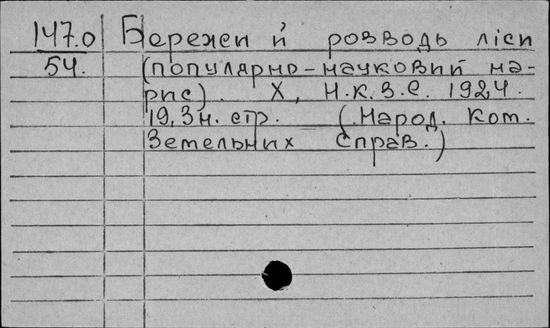 147.0 Бережи й розводь ліси
54. (популярно-науковий на-
рис). Х, Н.К.З.С. 1924.
19,3н. стр. (Народ. Ком.
Земельних Справ.)